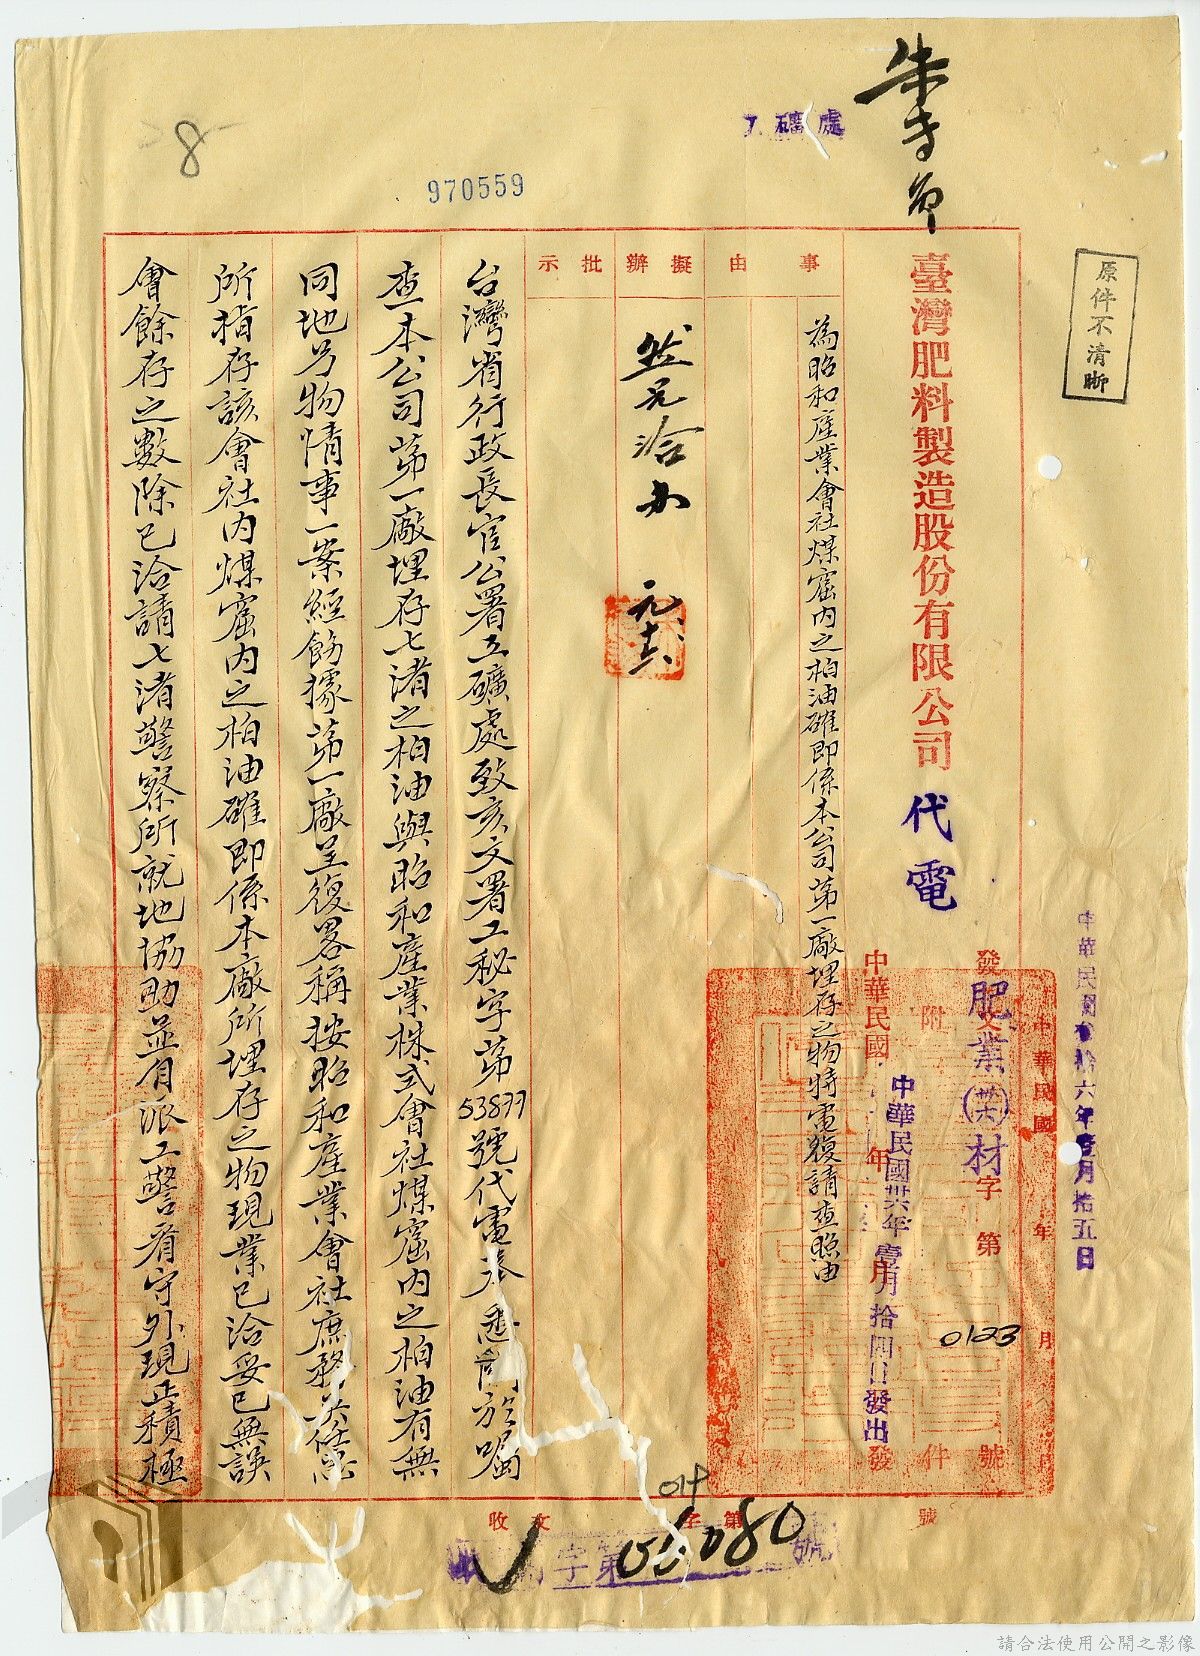 朱
工礦處
8
970559
原件不清晰
中華民國卅六年壹月拾五日
臺灣肥料製造股份有限公司 代電
發文 肥業(卅六)材字第0123號
附件
中華民國 年 月 日發
中華民國卅六年壹月拾四日發出
事由
擬辦
批示
為昭和產業會社煤窟內之柏油確即係本公司第一廠埋存之物特電復請查照由
台灣省行政長官公署工礦處致亥文署工秘字第53877號代電
查本公司第一廠埋存七渚之柏油與昭和產業株式會社煤窟內之柏油有無
同地另物情事一案經飭據第一廠呈復畧稱按昭和產業會社庶務
所指存該會社內煤窟內之柏油確即係本廠所埋存之物現業已洽妥已無誤
會餘存之數除已洽請七渚警察所就地協助並有派工警看守外現正積極
收文 字第 號
056080
請合法使用公開之影像